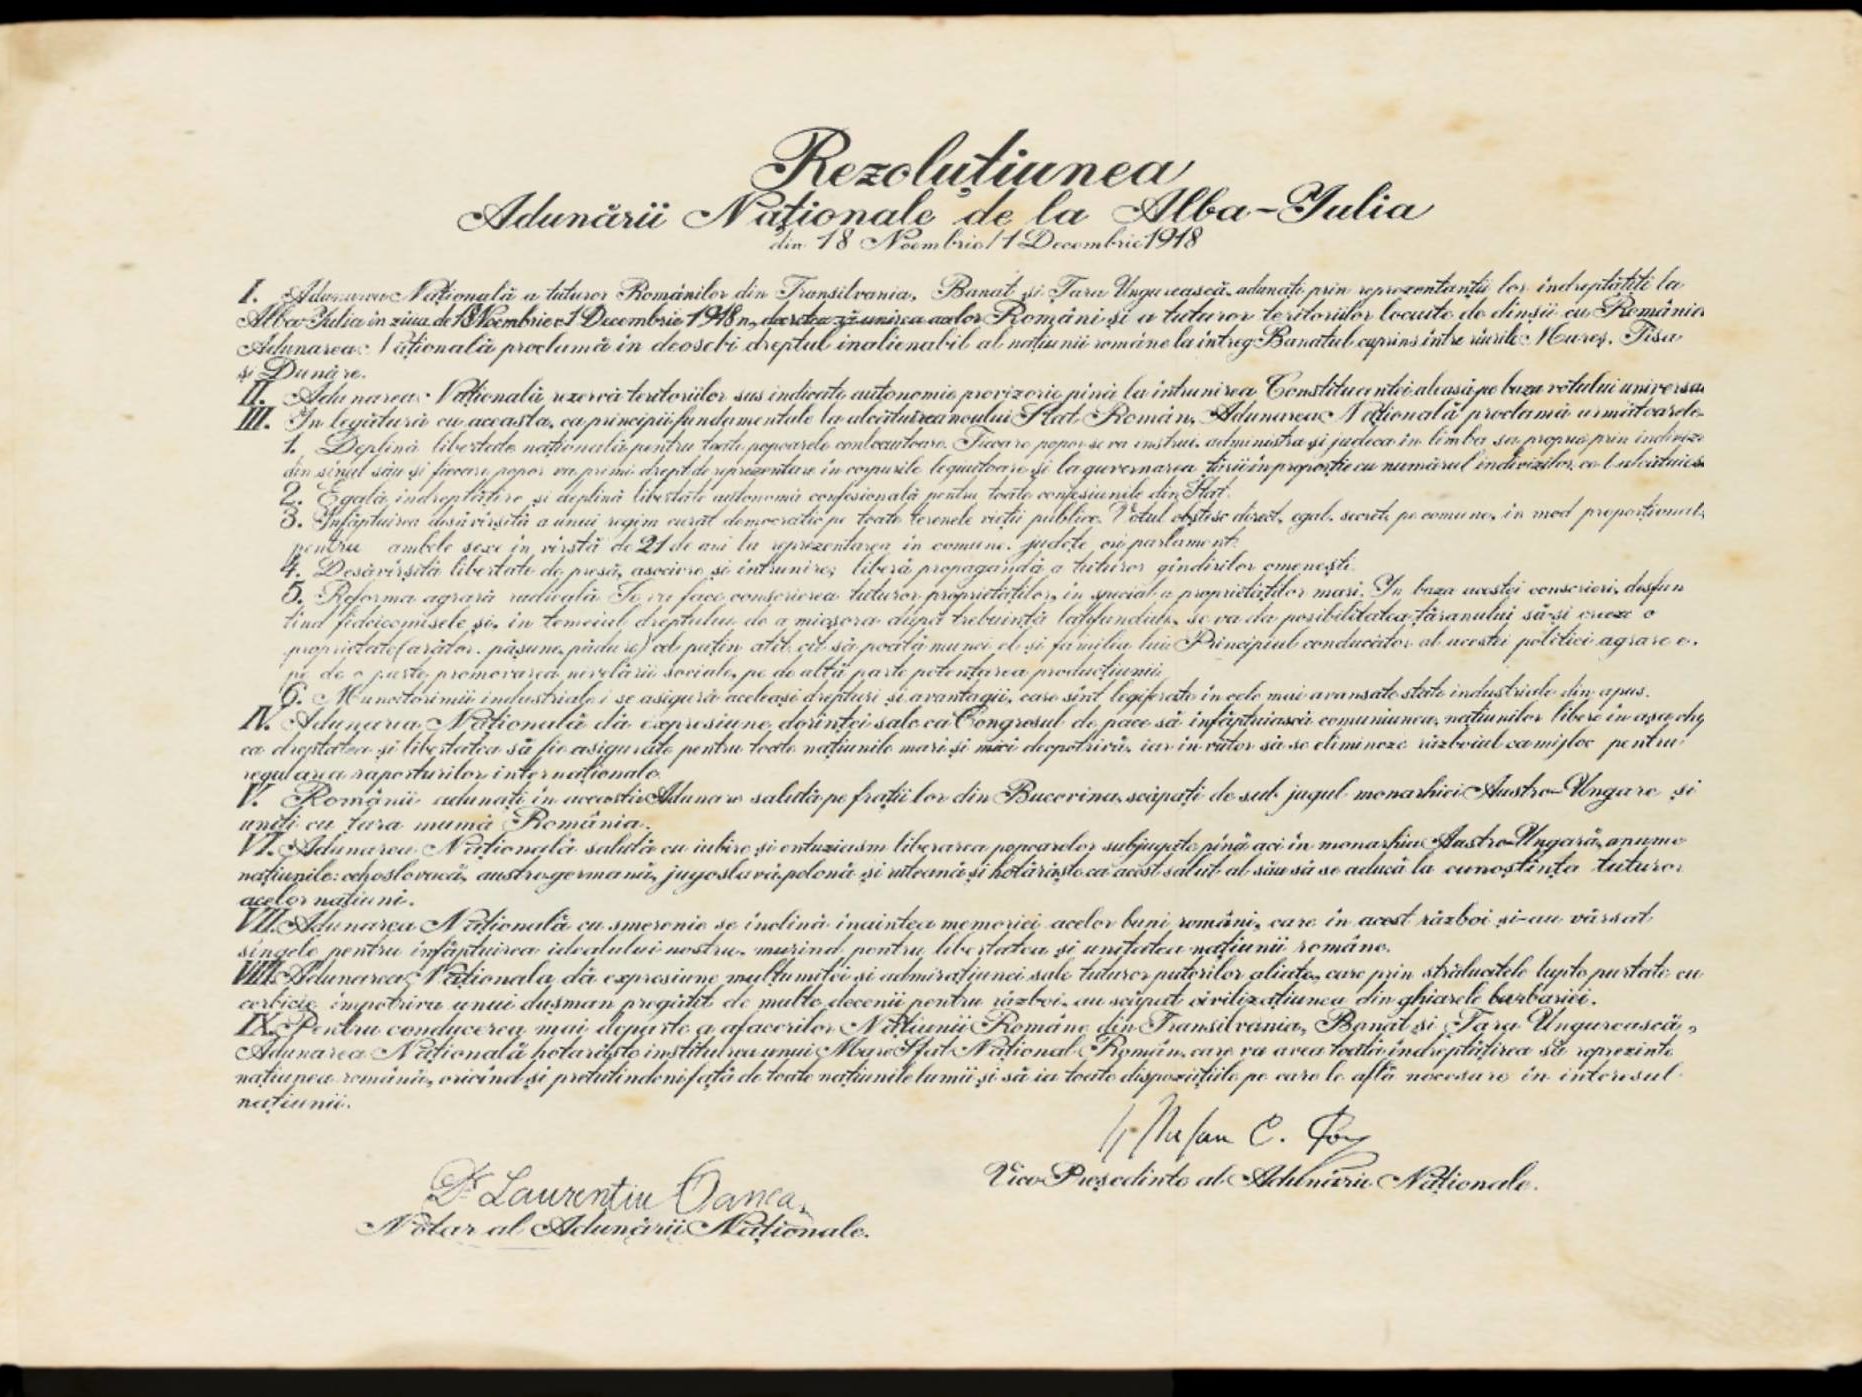 Rezoluțiunea
Adunării Naționale de la Alba-Iulia
din 18 Noembrie/1 Decembrie 1918
I. Adunarea Națională a tuturor Românilor din Transilvania, Banat și Țara Ungurească, adunați prin reprezentanții lor îndreptățiți la
Alba-Iulia în ziua de 18 Noembrie 1 Decembrie 1918, decretează unirea acelor Români și a tuturor teritoriilor locuite de dinșii cu România
Adunarea Națională proclamă în deosebi dreptul inalienabil al națiunii române la întreg Banatul cuprins între rîurile Mureș, Tisa
și Dunăre.
II. Adunarea Națională rezervă teritoriilor sus indicate autonomie provizorie pînă la întrunirea Constituantei aleasă pe baza votului universa
III. In legătură cu aceasta, ca principii fundamentale la alcătuirea noului Stat Român, Adunarea Națională proclamă următoarele
1. Deplină libertate națională pentru toate popoarele conlocuitoare. Fiecare popor se va instrui, administra și judeca în limba sa proprie prin indivizi
din sînul său și fiecare popor va primi drept de reprezentare în corpurile legiuitoare și la guvernarea țării în proporție cu numărul indivizilor ce-l alcătuiesc
2. Egală îndreptățire și deplină libertate autonomă confesională pentru toate confesiunile din Stat.
3. Înfăptuirea desăvîrșită a unui regim curat democratic pe toate terenele vieții publice. Votul obștesc direct, egal, secret, pe comune, în mod proporțional,
pentru ambele sexe în vîrstă de 21 de ani la reprezentarea în comune, județe ori parlament.
4. Desăvîrșită libertate de presă, asociere și întrunire; liberă propagandă a tuturor gîndirilor omenești.
5. Reforma agrară radicală. Se va face conscrierea tuturor proprietăților, în special a proprietăților mari. In baza acestei conscrieri, desfun
țind fideicomisele și, în temeiul dreptului de a micșora după trebuință latifundiile, se va da posibilitatea țăranului să-și creeze o
proprietate (arător, pășune, pădure) cel puțin atît cît să poată munci el și familia lui. Principiul conducător al acestei politici agrare e,
pe de o parte promovarea nivelării sociale, pe de altă parte potențarea producțiunii.
6. Muncitorimii industriale i se asigură aceleași drepturi și avantagii, care sînt legiferate în cele mai avansate state industriale din apus.
IV. Adunarea Națională dă expresiune dorinței sale ca Congresul de pace să înfăptuiască comuniunea națiunilor libere în așa chip
ca dreptatea și libertatea să fie asigurate pentru toate națiunile mari și mici deopotrivă, iar în viitor să se elimineze războiul ca mijloc pentru
regularea raporturilor internaționale.
V. Românii adunați în această Adunare salută pe frații lor din Bucovina, scăpați de sub jugul monarhiei Austro-Ungare și
uniți cu țara mumă România.
VI. Adunarea Națională salută cu iubire și entuziasm liberarea popoarelor subjugate pînă aci în monarhia Austro-Ungară, anume
națiunile: cehoslovacă, austro-germană, jugoslavă, polonă și ruteană și hotărăște ca acest salut al său să se aducă la cunoștința tuturor
acelor națiuni.
VII. Adunarea Națională cu smerenie se înclină înaintea memoriei acelor buni români, care în acest război și-au vărsat
sîngele pentru înfăptuirea idealului nostru, murind pentru libertatea și unitatea națiunii române.
VIII. Adunarea Națională dă expresiune mulțumitei și admirațiunei sale tuturor puterilor aliate, care prin strălucitele lupte purtate cu
cerbicie împotriva unui dușman pregătit de multe decenii pentru război, au scăpat civilizațiunea din ghiarele barbariei.
IX. Pentru conducerea mai departe a afacerilor Națiunii Române din Transilvania, Banat și Țara Ungurească,
Adunarea Națională hotărăște instituirea unui Mare Sfat Național Român, care va avea toată îndreptățirea să reprezinte
națiunea română, oricînd și pretutindeni față de toate națiunile lumii și să ia toate dispozițiile pe care le află necesare în interesul
națiunii.
Ștefan C. Pop
Vice Președinte al Adunării Naționale.
Dr Laurențiu Oanea,
Notar al Adunării Naționale.